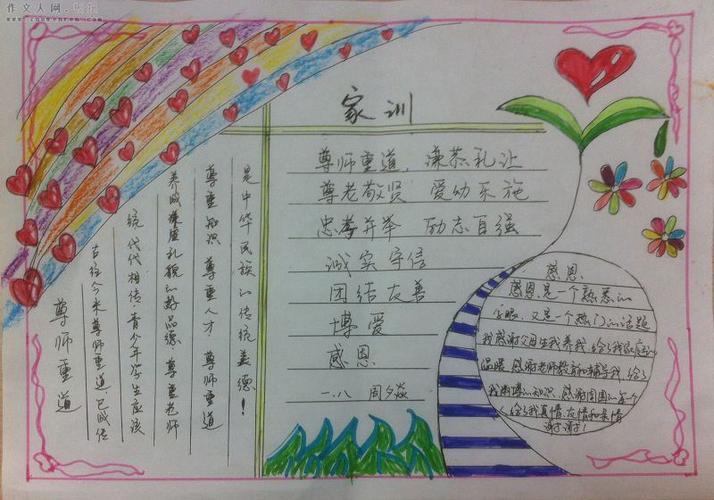 作文人网
家训
尊师重道、谦恭礼让
尊老敬贤 爱幼乐施
忠孝并举 励志自强
诚实守信
团结友善
博爱
感恩
一.八 周夕焱
尊师重道
古往今来尊师重道已成传
统代代相传.青少年学生应该
养成谦虚礼貌的好品德.尊重老师
尊重知识 尊重人才.尊师重道
是中华民族的传统美德!
感恩
感恩.是一个熟悉的
字眼、又是一个热门的话题
我感谢父母生我养我.给了我家庭的
温暖.感谢老师教育和辅导我.给了
我渊博的知识.感谢周围的每个
人.给了我真情.友情和亲情
谢谢!